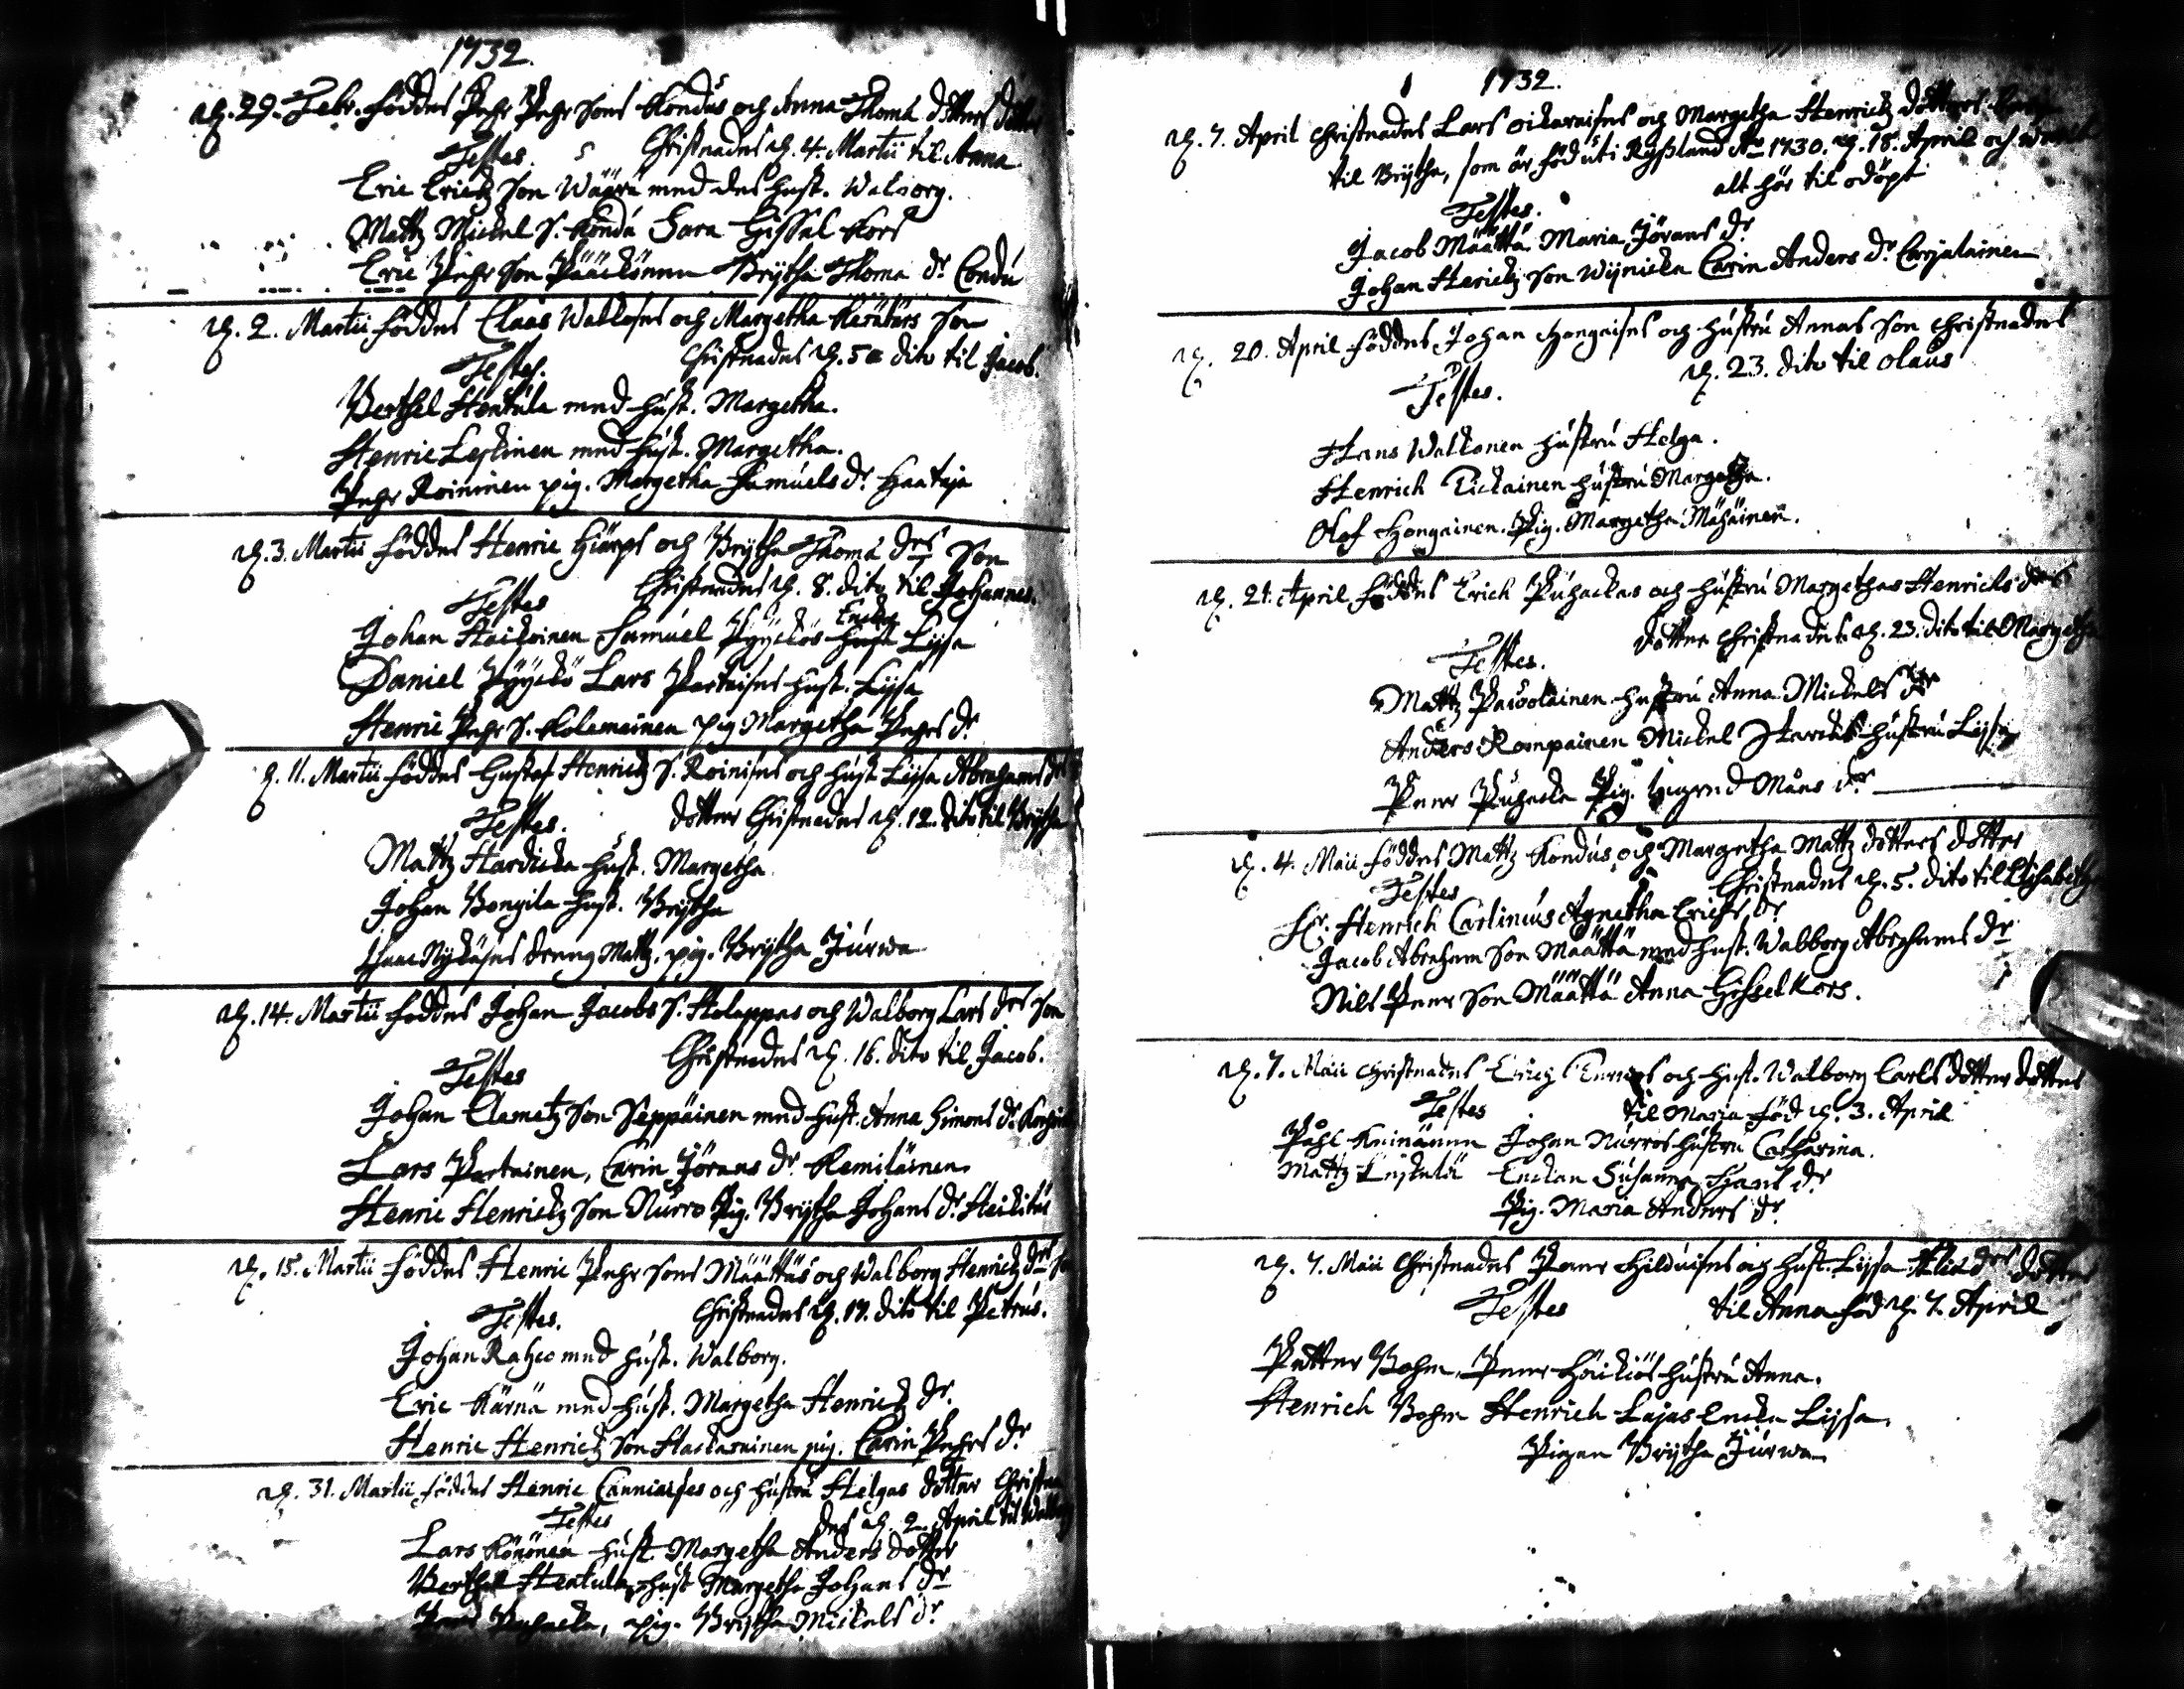 1732.
d. 29. Febr. föddes Pehr Pehr Sons Kondus och Anna Thomæ dotters dotter
Testes. Christnades d. 4. Martii til Anna
Eric Ericks Son Wäärä med des hust. Walborg.
Mattz Mickel S. Kondu Sara Gissel Kors
Eric Pehr Son Pääckönen Brytha Thomæ dr Condu
d. 2. Martii föddes Claas Walloses och Margetha Kärätärs Son
Testes. Christnades d. 5 dito til Jacob.
Berthel Hentula med hust. Margetha.
Henric Leskinen med hust. Margetha.
Pehr Roininen pig. Margetha Samuels dr Haataja
d. 3. Martii föddes Henric Hiärps och Brytha Thomæ drs Son
Testes Christnades d. 8. dito til Johannes.
Enckan
Johan Haikoinen Samuel Pyyckös Lijsa
Daniel Pyyckö Lars Partaises hust. Lijsa
Henric Pehr S. Kolemainen pig Margetha Pehrs dr
d. 11. Martii föddes Gustaf Henricks S. Roinises och hust. Lijsa Abrahams drs
Testes. dotter Christnades d. 12. dito til Brytha
Mattz Hardicka hust. Margetha.
Johan Bongila hust. Brytha
Nykäses dreng Mattz. pig. Brytha Jurwa
d. 14. Martii föddes Johan Jacobs S. Holappas och Walborg Lars drs Son
Testes Christnades d. 16. dito til Jacob.
Johan Clemetz Son Seppäinen med hust. Anna Simons dr
Lars Partainen, Carin Jörans dr Kemiläinen
Henric Henricks Son Nurro Pig. Brytha Johans dr
d. 15. Martii föddes Henric Pehr Sons Määttäs och Walborg Henricks drs
Testes. Christnades d. 17. dito til Petrus.
Johan Raheo med hust. Walborg.
Eric Kärnä med hust. Margetha Henricks dr.
Henric Henricks Son Haskarainen pig. Carin Pehrs dr
d. 31. Martii föddes Henric Canniaises och hustru Helgas dotter Christna
Testes des d. 2. April til Walborg
Lars Könönen hust Margetha Anders dotter
Berthel Hentula hust Margetha Johans dr
Puhacka, pig. Brytha Mickels dr
1732.
d. 7. April christnades Lars Oikaraises och Margetha Henricks dotters
til Brytha, som är född uti Ryssland Ao 1730. d. 18. April och
alt här til odöpt
Testes.
Jacob Määttä. Maria Jörans dr
Johan Henricks Son Wijnicka Carin Anders dr Carjalainen
d. 20. April föddes Johan Hongaises och hustru Annas Son christnades
Testes. d. 23. dito til Olaus
Hans Walkonen hustru Helga.
Henrich Tickainen hustru Margetha.
Olof Hongainen. Pig. Margetha Mähäinen.
d. 21. April föddes Erich Puhackas och hustru Margethas Henricks drs
Testes. dotter christnades d. 23. dito til Margetha
Mattz Pawolainen hustru Anna Mickels dr
Anders Rompainen Mickel hustru Lijsa
Peer Puhacka Pig. Måns dr
d. 4. Maii föddes Mattz Kondus och Margetha Mattz dotters dotter
Testes Christnades d. 5. dito til Elisabeth
Hr. Henrich Carlinius Agnetha Erichs dr
Jacob Abraham Son Määttä med hust. Walborg Abrahams dr
Nils Peer Son Määttä Anna Gissel Kors.
d. 7. Maii christnades Erich och hust. Walborg Carls dotter dotter
Testes til Maria föd d. 3. April
Påhl Keinänen Johan Nurros hustru Catharina.
Mattz Enckan Susanna Hans dr
Pig. Maria Anders dr
d. 7. Maii Christnades Peer Hilduises och hust. Lijsa drs dotter
Testes til Anna föd d. 7. April
Petter Bohm, Peer hustru Anna.
Henrich Bohm Henrich Lajas Encka Lijsa
Pigan Brytha Jurwa